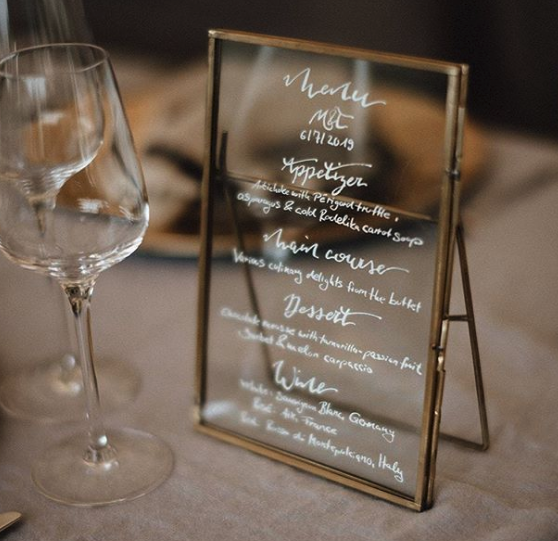 Menu
M&E
6/7/2019
Appetizer
Artichoke with Périgord truffle,
asparagus & cold Rodelika carrot soup
Main course
Various culinary delights from the buffet
Dessert
Chocolate mousse with tamarillo-passion fruit
Sorbet & melon carpaccio
Wine
White: Sauvignon Blanc, Germany
Rosé: Aix, France
Red: Rosso di Montepulciano, Italy